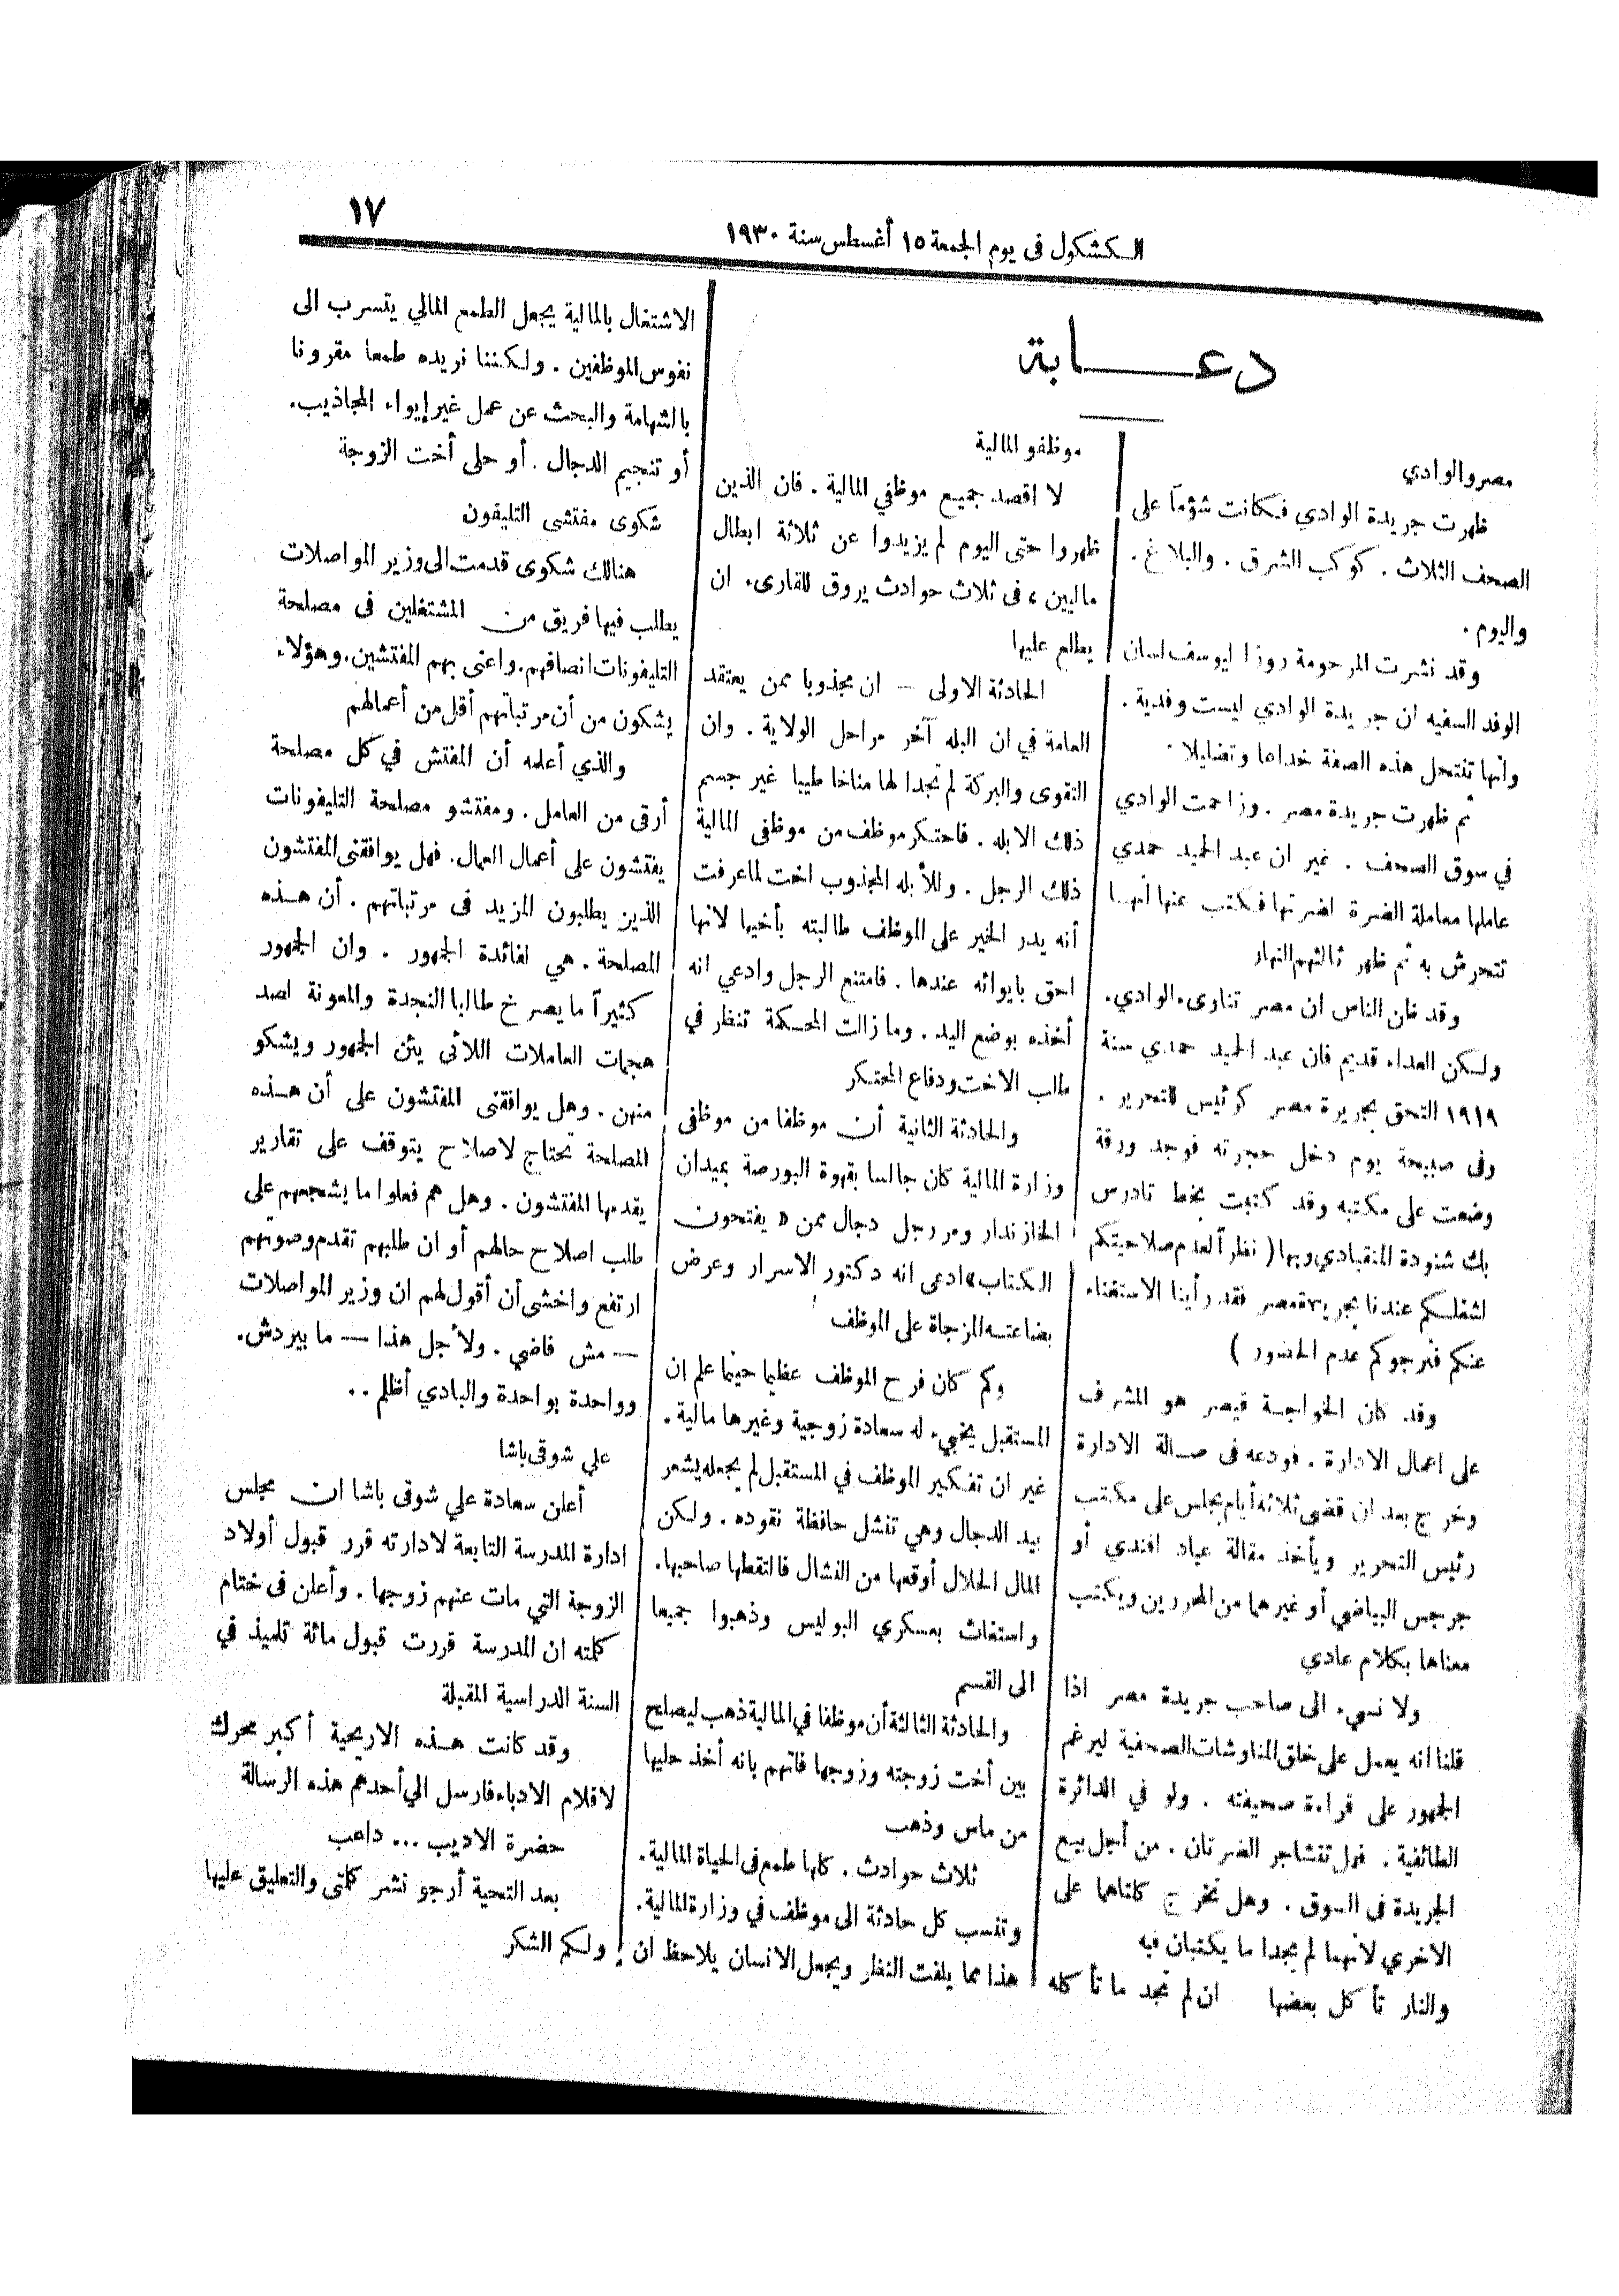 الكشكول فى يوم الجمعة ١٥ أغسطس سنة ١٩٣٠
١٧
دعابة
مصر والوادي
ظهرت جريدة الوادي فكانت شؤماً على
الصحف الثلاث . كوكب الشرق . والبلاغ .
واليوم .
وقد نشرت المرحومة روزا ليوسف لسان
الوفد السفيه ان جريدة الوادي ليست وفدية .
وأنها تنتحل هذه الصفة خداعا وتضليلا .
ثم ظهرت جريدة مصر . وزاحمت الوادي
في سوق الصحف . غير ان عبد الحميد حمدي
عاملها معاملة الضرة لضرتها فكتب عنها أنهـا
تتحرش به ثم ظهر ثالثهم النهار
وقد ظن الناس ان مصر تناوىء الوادي .
ولكن العداء قديم فان عبد الحميد حمدي سنة
١٩١٩ التحق بجريدة مصر كرئيس للتحرير .
وفى صبيحة يوم دخل حجرته فوجد ورقة
وضعت على مكتبه وقد كتبت بخط تادرس
بك شنودة المنقبادي وبها ( نظراً لعدم صلاحيتكم
لشغلكم عندنا بجريدة مصر فقد رأينا الاستغناء
عنكم فنرجوكم عدم الحضور )
وقد كان الخواجة قيصر هو المشرف
على اعمال الادارة . فودعه فى صالة الادارة
وخرج بعد ان قضى ثلاثة أيام يجلس على مكتب
رئيس التحرير ويأخذ مقالة عياد افندي أو
جرجس البياضي أو غيرهما من المحررين ويكتب
معناها بكلام عادي
ولا نسيء الى صاحب جريدة مصر اذا
قلنا انه يعمل على خلق المناوشات الصحفية ليرغم
الجمهور على قراءة صحيفته . ولو في الدائرة
الطائفية . فهل تتشاجر الضرتان . من أجل بيع
الجريدة فى السوق . وهل تخرج كلتاهما على
الاخري لانهما لم يجدا ما يكتبان فيه
والنار تأكل بعضها ان لم تجد ما تأكله
موظفو المالية
لا اقصد جميع موظفي المالية . فان الذين
ظهروا حتى اليوم لم يزيدوا عن ثلاثة ابطال
ماليين ، فى ثلاث حوادث يروق للقارىء ان
يطلع عليها
الحادثة الاولى — ان مجذوبا ممن يعتقد
العامة في ان البله آخر مراحل الولاية . وان
التقوى والبركة لم تجدا لها مناخا طيبا غير جسم
ذلك الابله . فاحتكر موظف من موظفى المالية
ذلك الرجل . وللأبله المجذوب اخت لما عرفت
أنه يدر الخير على الموظف طالبته بأخيها لانها
احق بايوائه عندها . فامتنع الرجل وادعي انه
أخذه بوضع اليد . وما زالت المحكمة تنظر في
طلب الاخت ودفاع المحتكر
والحادثة الثانية أن موظفا من موظفى
وزارة المالية كان جالسا بقهوة البورصة بميدان
الخازندار ومر رجل دجال ممن « يفتحون
الكتاب » ادعى انه دكتور الاسرار وعرض
بضاعته المزجاة على الموظف
وكم كان فرح الموظف عظيما حينما علم ان
المستقبل يخبيء له سعادة زوجية وغيرها مالية .
غير ان تفكير الموظف في المستقبل لم يجعله يشعر
بيد الدجال وهي تنشل حافظة نقوده . ولكن
المال الحلال أوقعها من النشال فالتقطها صاحبها .
واستغاث بعسكري البوليس وذهبوا جميعا
الى القسم
والحادثة الثالثة أن موظفا في المالية ذهب ليصلح
بين أخت زوجته وزوجها فاتهم بانه أخذ حليها
من ماس وذهب
ثلاث حوادث . كلها طمع فى الحياة المالية .
وتنسب كل حادثة الى موظف في وزارة المالية .
هذا مما يلفت النظر ويجعل الانسان يلاحظ ان
الاشتغال بالمالية يجعل الطمع المالي يتسرب الى
نفوس الموظفين . ولكننا نريده طمعا مقرونا
بالشهامة والبحث عن عمل غير إيواء المجاذيب .
أو تنجيم الدجال . أو حلى أخت الزوجة
شكوى مفتشى التليفون
هنالك شكوى قدمت الى وزير المواصلات
يطلب فيها فريق من المشتغلين فى مصلحة
التليفونات انصافهم . واعنى بهم المفتشين . وهؤلاء
يشكون من أن مرتباتهم أقل من أعمالهم
والذي أعلمه أن المفتش في كل مصلحة
أرقى من العامل . ومفتشو مصلحة التليفونات
يفتشون على أعمال العمال . فهل يوافقنى المفتشون
الذين يطلبون المزيد فى مرتباتهم . أن هـذه
المصلحة . هي لفائدة الجمهور . وان الجمهور
كثيراً ما يصرخ طالبا النجدة والمعونة لصد
هجمات العاملات اللائى يئن الجمهور ويشكو
منهن . وهل يوافقنى المفتشون على أن هـذه
المصلحة تحتاج لاصلاح يتوقف على تقارير
يقدمها المفتشون . وهل هم فعلوا ما يشجعهم على
طلب اصلاح حالهم أو ان طلبهم تقدم وصوتهم
ارتفع واخشى أن أقول لهم ان وزير المواصلات
— مش فاضي . ولأجل هذا — ما بيردش .
وواحدة بواحدة والبادي أظلم ..
علي شوقى باشا
أعلن سعادة علي شوقى باشا ان مجلس
ادارة المدرسة التابعة لادارته قرر قبول أولاد
الزوجة التي مات عنهم زوجها . وأعلن فى ختام
كلمته ان المدرسة قررت قبول مائة تلميذ في
السنة الدراسية المقبلة
وقد كانت هـذه الاريحية أكبر محرك
لاقلام الادباء فارسل الي أحدهم هذه الرسالة
حضرة الاديب ... داعب
بعد التحية أرجو نشر كلمتى والتعليق عليها
ولكم الشكر